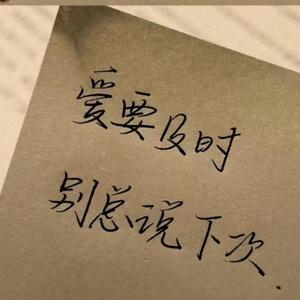 爱要及时
别总说下次